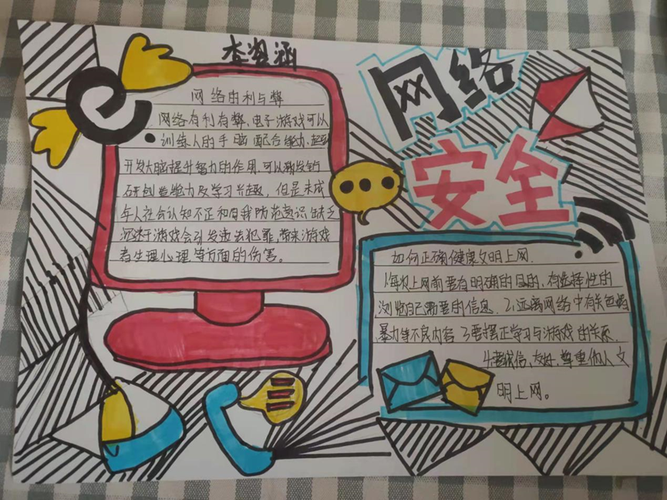 查涵
网络
安全
网络的利与弊
网络有利有弊,电子游戏可以
训练人的手脑配合能力,起到
开发大脑提升智力的作用,可以激发钻
研创造能力及学习兴趣,但是未成
年人在会认知不正和自我防范意识缺乏
沉迷于游戏会引发违法犯罪,带来游戏
者生理心理等负面的伤害。
如何正确健康文明上网
1.每次上网前要有明确的目的,有选择性的
浏览自己需要的信息。2.远离网络中有关色情
暴力等不良内容 3.要摆正学习与游戏的关系
4.要诚信、友好、尊重他人文
明上网。